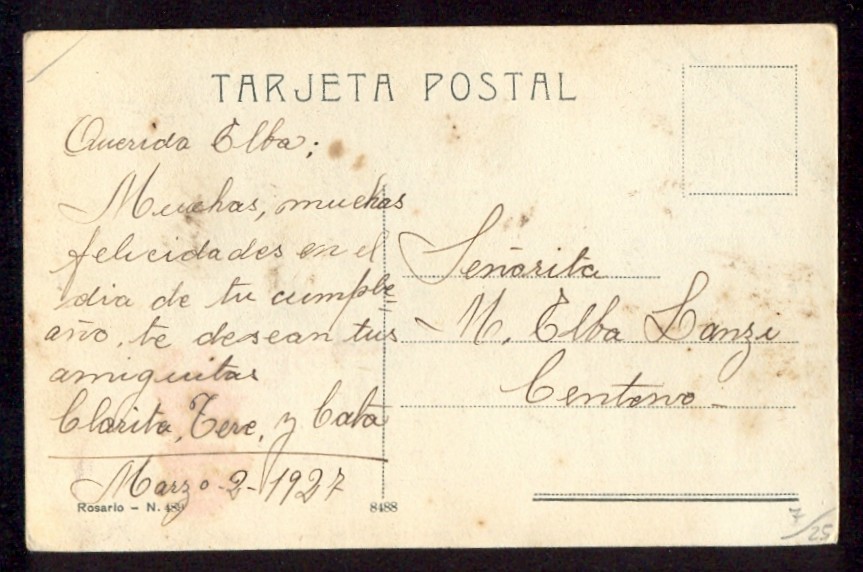 TARJETA POSTAL
Querida Elba;
Muchas, muchas
felicidades en el
dia de tu cumple=
año, te desean tus
amiguitas
Clarita, Tere, y Cata
Marzo-2-1927
Rosario - N.
8488
Señorita
M. Elba Lanzi
Centeno-
7/25